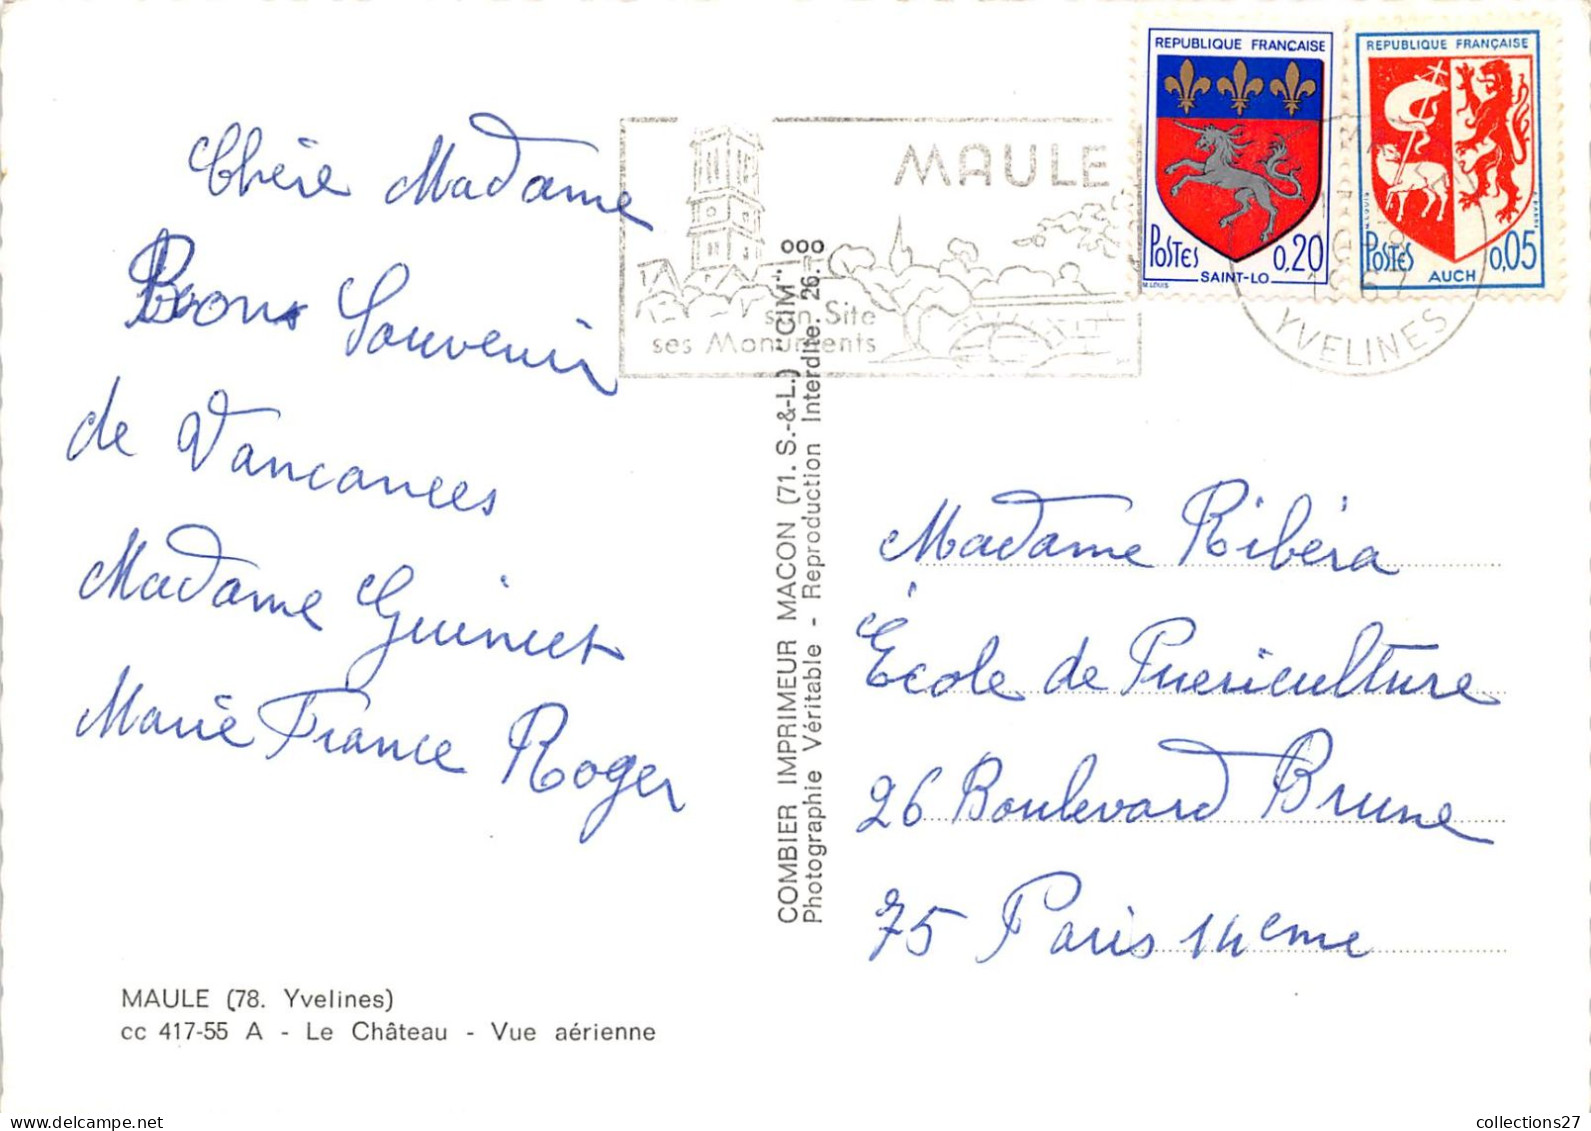 Chère Madame
Bons Souvenir
de Vancances
Madame Guinuet
Marie France Roger
MAULE (78. Yvelines)
cc 417-55 A - Le Château - Vue aérienne
MAULE
son Site
ses Monuments
COMBIER IMPRIMEUR MACON (71. S.-&-L.) "CIM"
Photographie Véritable - Reproduction Interdite. 26.
REPUBLIQUE FRANCAISE
POSTES 0,20
SAINT-LO
M.LOUIS
REPUBLIQUE FRANÇAISE
POSTES 0,05
AUCH
YVELINES
Madame Ribéra
École de Puericulture
26 Boulevard Brune
75 Paris 14eme
collections27